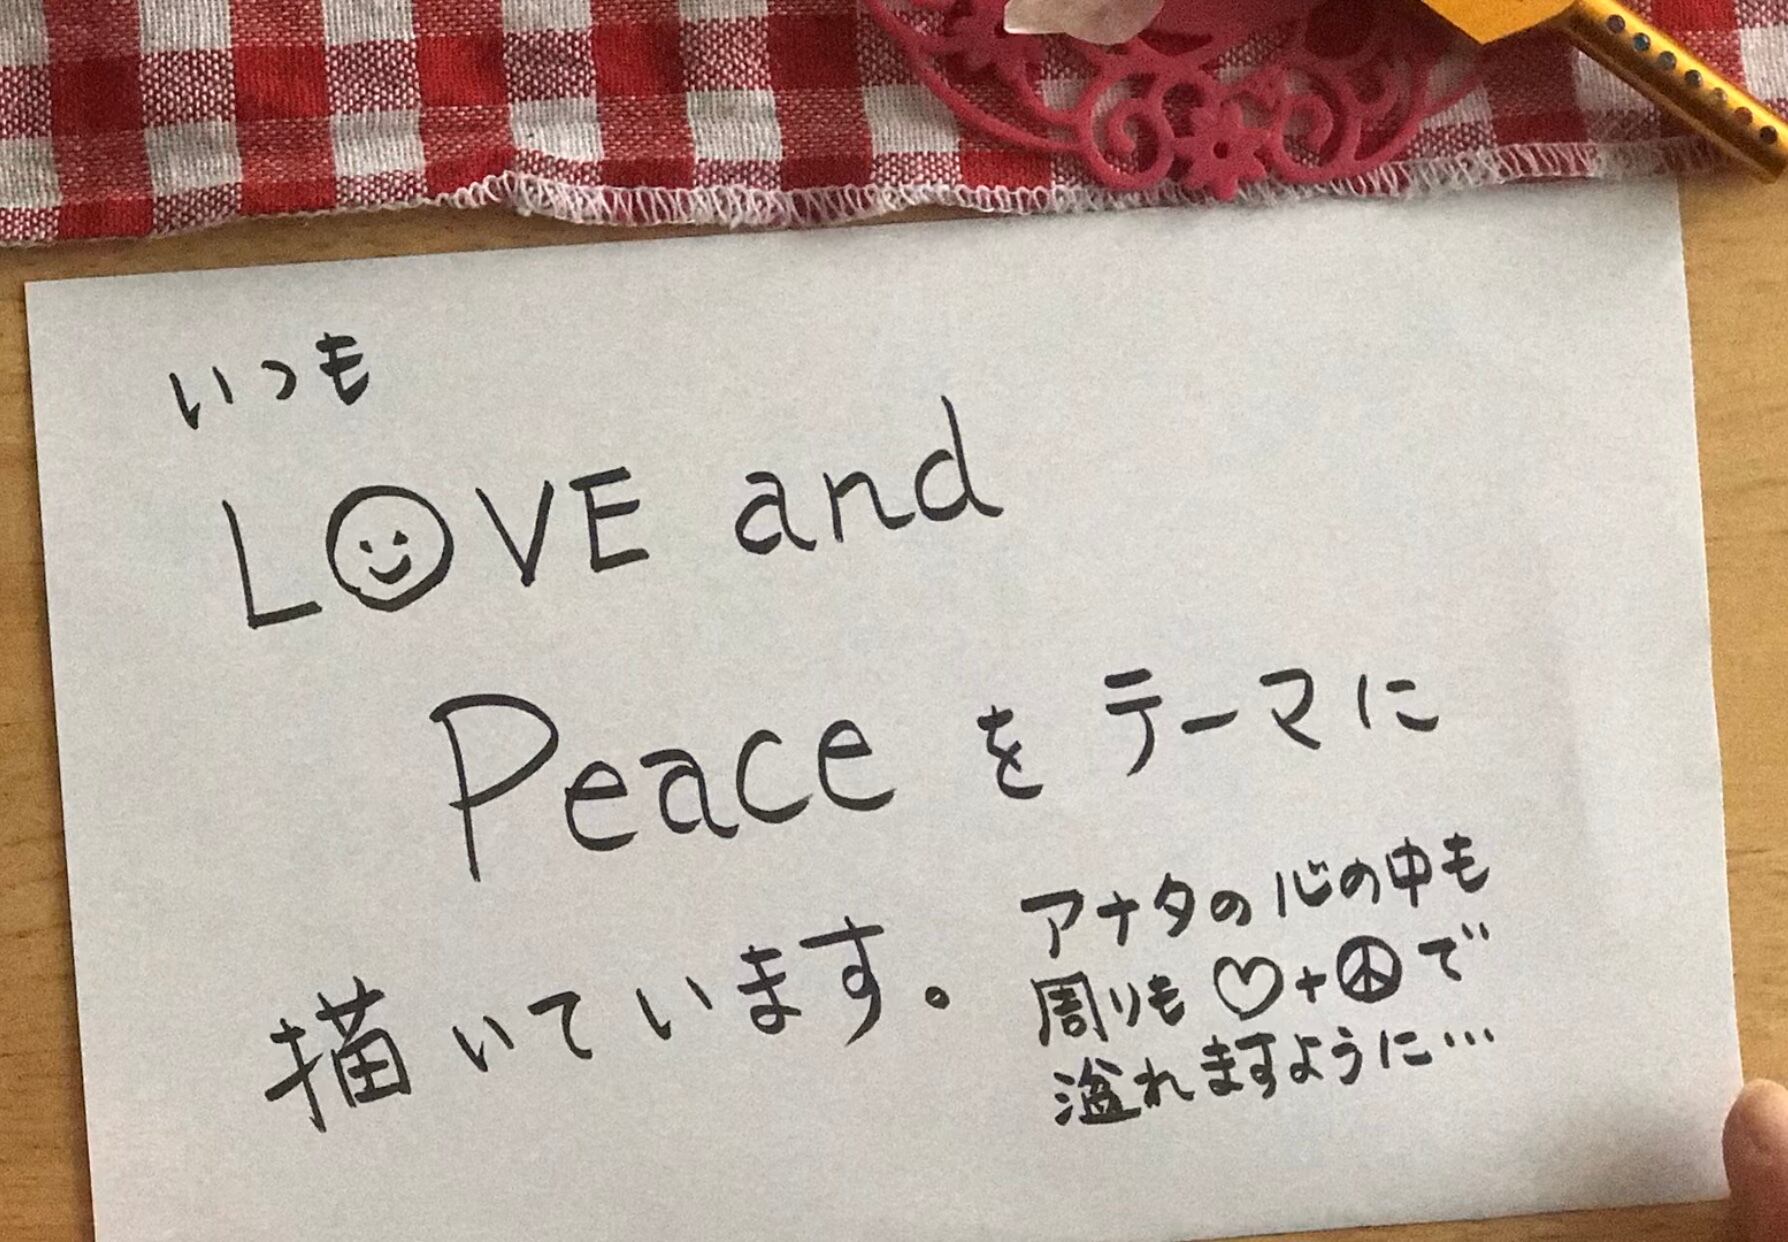 いつも
LOVE and
Peace を テーマに
描いています。
アナタの心の中も
周りも ♡+☮で
溢れますように…